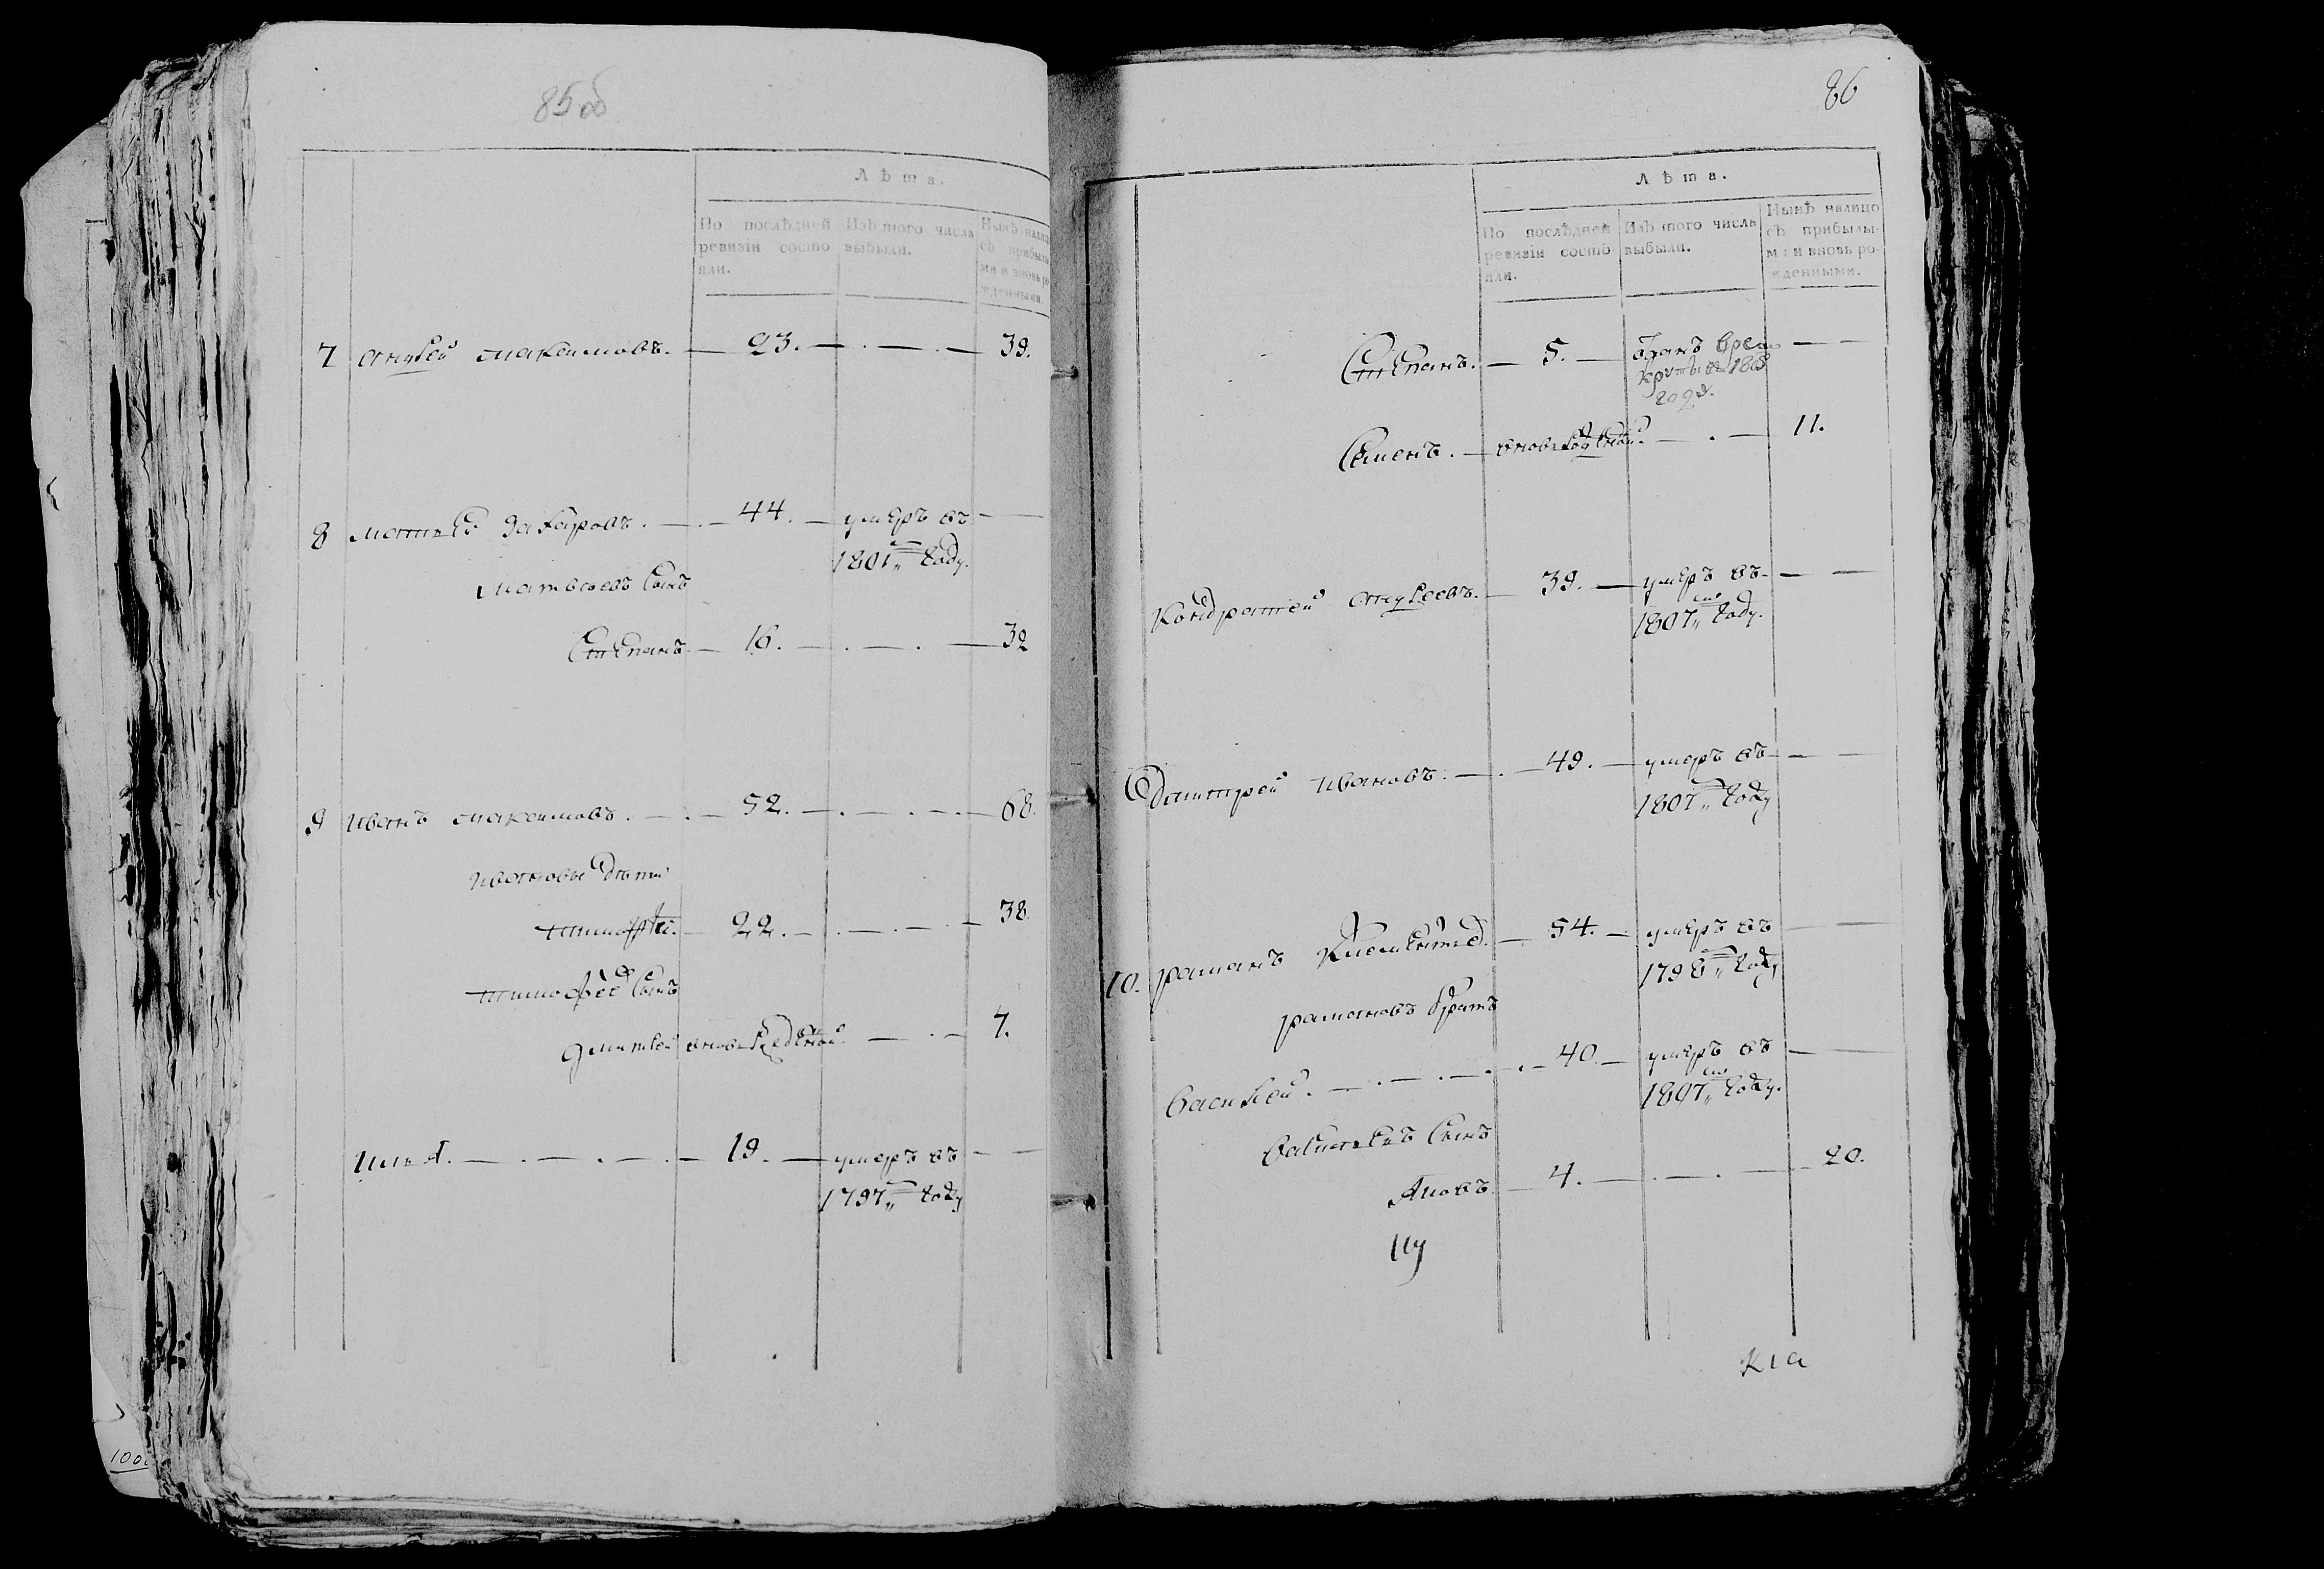 85об
Лѣта.
По послѣдней ревизіи состояли.
Изъ того числа выбыли.
Нынѣ налицо съ прибылыми и вновь рожденными.
7 Анцыфей Максимовъ. — 23. — . — . — 39.
8 Матвей Захаровъ. — . — 44. — умеръ въ — —
1801„ году.
Матвѣевъ сынъ
Степанъ — 16. — . — . — 32
9 Иванъ Максимовъ. — . — 52. — . — . — . — 68.
Ивановы дѣти
Тимофей. — 22. — . — . — 38.
Тимофеевъ сынъ
Дмитрей вновь рожденной. — . — 7.
Илья. — . — . — . — 19. — умеръ въ — —
1797„ году
86
Лѣта.
По послѣдней ревизіи состояли.
Изъ того числа выбыли.
Нынѣ налицо съ прибылыми и вновь рожденными.
Степанъ. — 5. — отданъ в рекруты в 1808 — —
году.
Семенъ. — вновь рожденной. — . — 11.
Кондратей — 39. — умеръ въ — —
1807„ году.
Дмитрей Ивановъ. — . — 49. — умеръ въ — —
1807„ году
10. Романъ Клементьевъ. — 54. — умеръ въ —
1798„ году
Романовъ братъ
Василей. — . — . — . — 40. — умеръ въ —
1807„ году.
Васильевъ сынъ
Яковъ — 4. — . — . — 20.
Иу
кіа
100